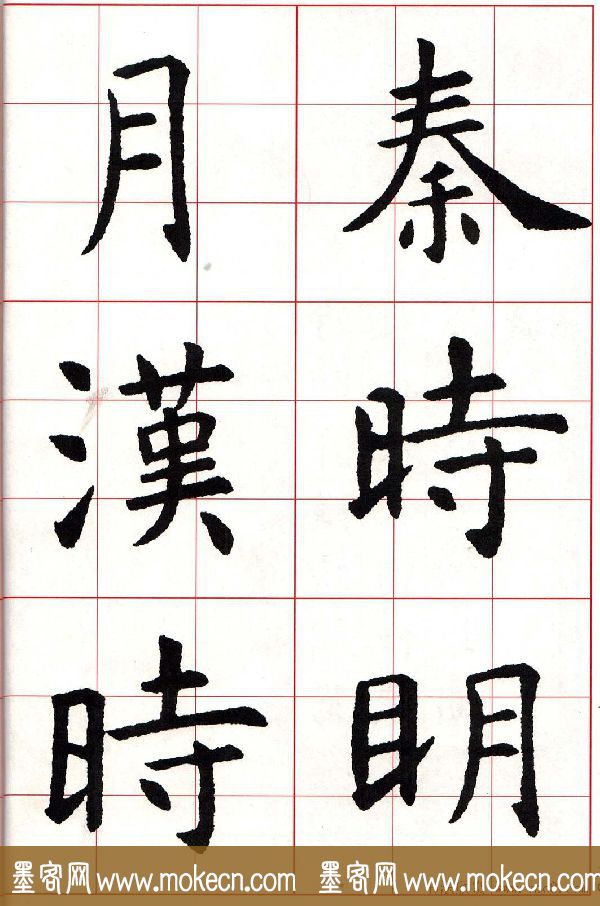 秦時明
月漢時
墨客网 www.mokecn.com 墨客网 www.mokecn.com